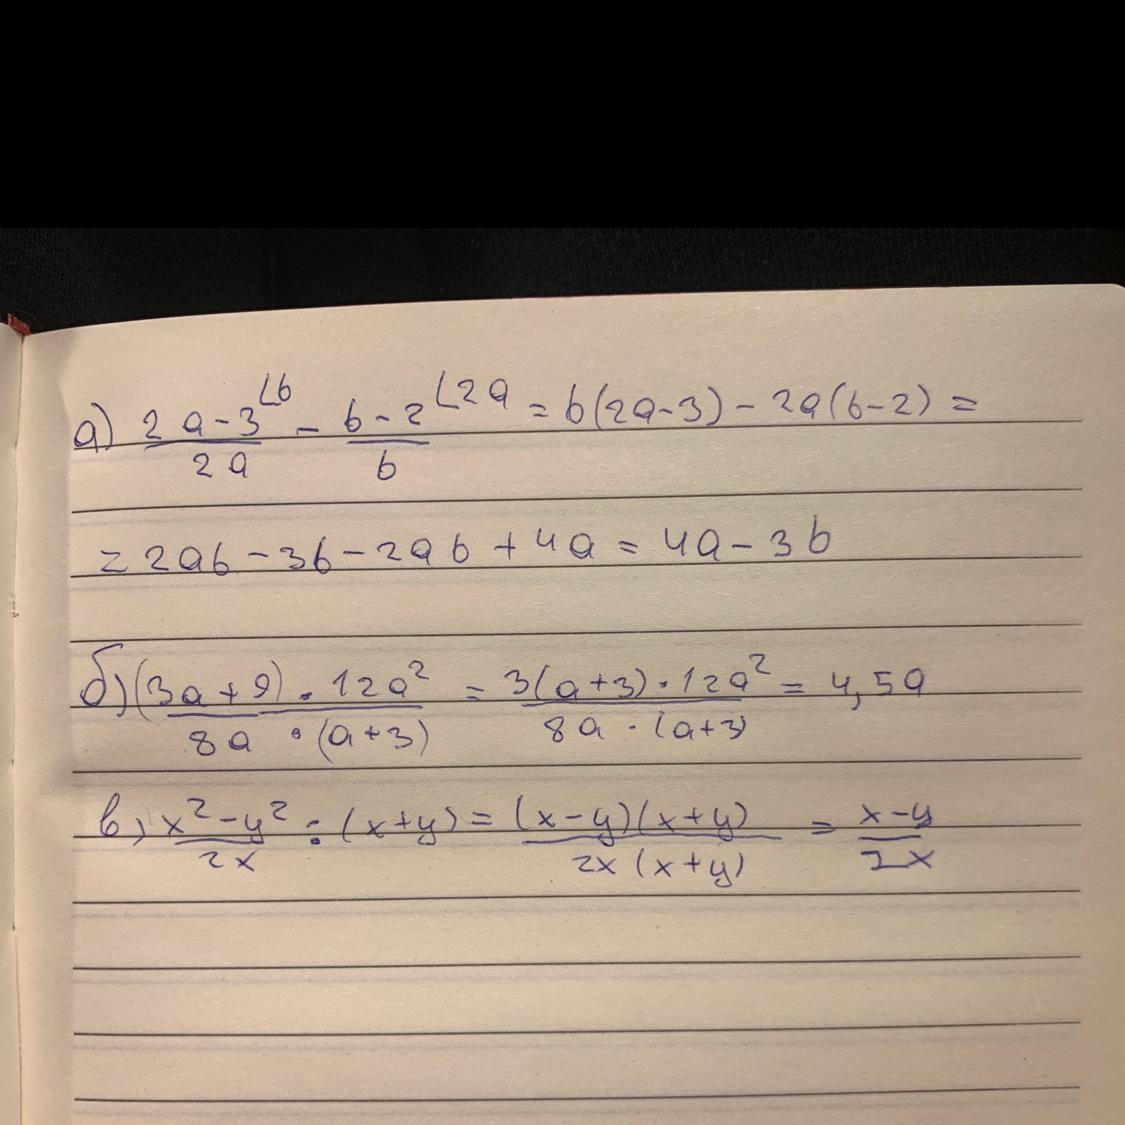 а) (2a-3)/2a ⌊b - (b-2)/b ⌊2a = b(2a-3) - 2a(b-2) =
= 2ab - 3b - 2ab + 4a = 4a - 3b
б) (3a+9)·12a²/8a·(a+3) = 3(a+3)·12a²/8a·(a+3) = 4,5a
в) x²-y²/2x : (x+y) = (x-y)(x+y)/2x(x+y) = x-y/2x